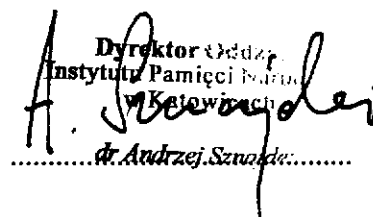 Dyrektor Oddz
Instytutu Pamięci Naro
w Katowicach
A. Sznajder
dr Andrzej Sznajder